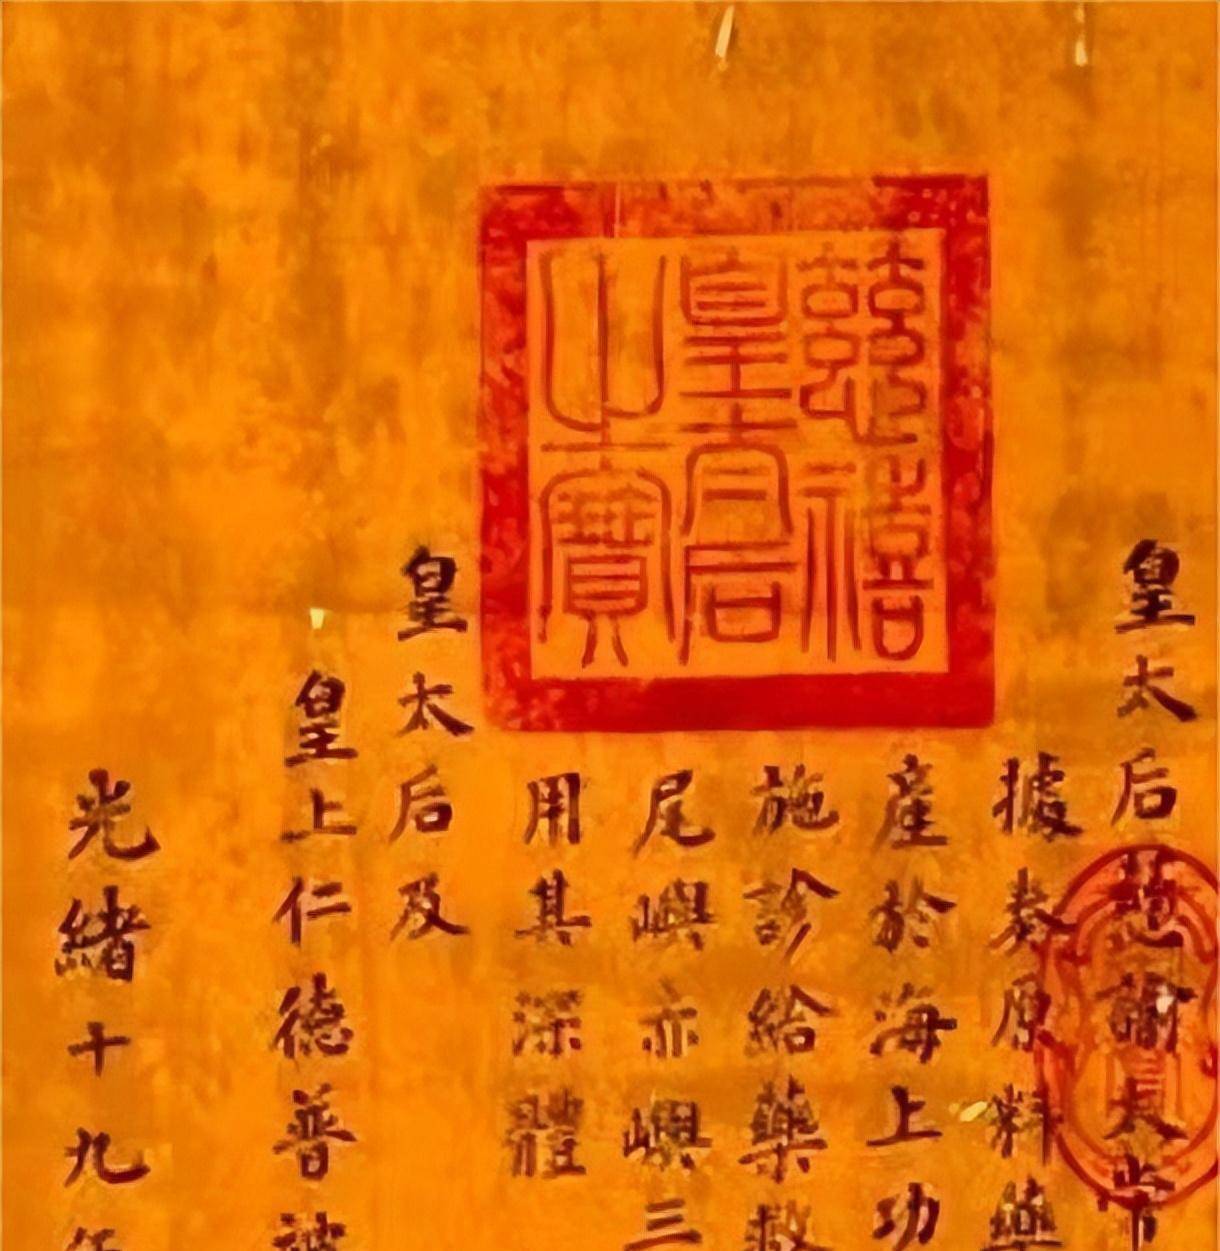 皇太后慈諭太常
據奏原料藥
慈禧
皇太后
之寶
產於海上功
施診給藥救
尾嶼赤嶼三
用其深體
皇太后及
皇上仁德普被
光緒十九年